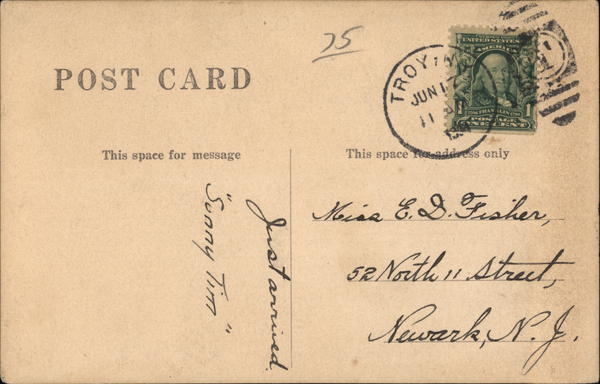 75
POST CARD
TROY, N.Y.
JUN 1
11
UNITED STATES OF
AMERICA
FRANKLIN
1 POSTAGE 1
ONE CENT
This space for message
This space for address only
Just arrived.
"Sunny Tim"
Miss E. D. Fisher,
52 North 11 Street,
Newark, N. J.